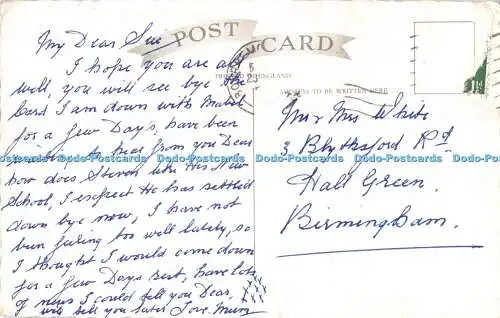 POST CARD
PRINTED IN ENGLAND
ADDRESS TO BE WRITTEN HERE
My Dear Sue
I hope you are all
well, you will see bye the
Card I am down with Mabel
for a few Day's, have been
to hear from you Dear
how does Steven like His New
School, I expect He has settled
down bye now, I have not
been feeling too well lately, so
I thought I would come down
for a few Days rest, have lots
of news I could tell you Dear,
will tell you later Love Mum
xxxx
Mr & Mrs White
3 Blythsford Rd
Hall Green.
Birmingham.
Dodo-Postcards Dodo-Postcards Dodo-Postcards Dodo-Postcards Dodo-Postcards